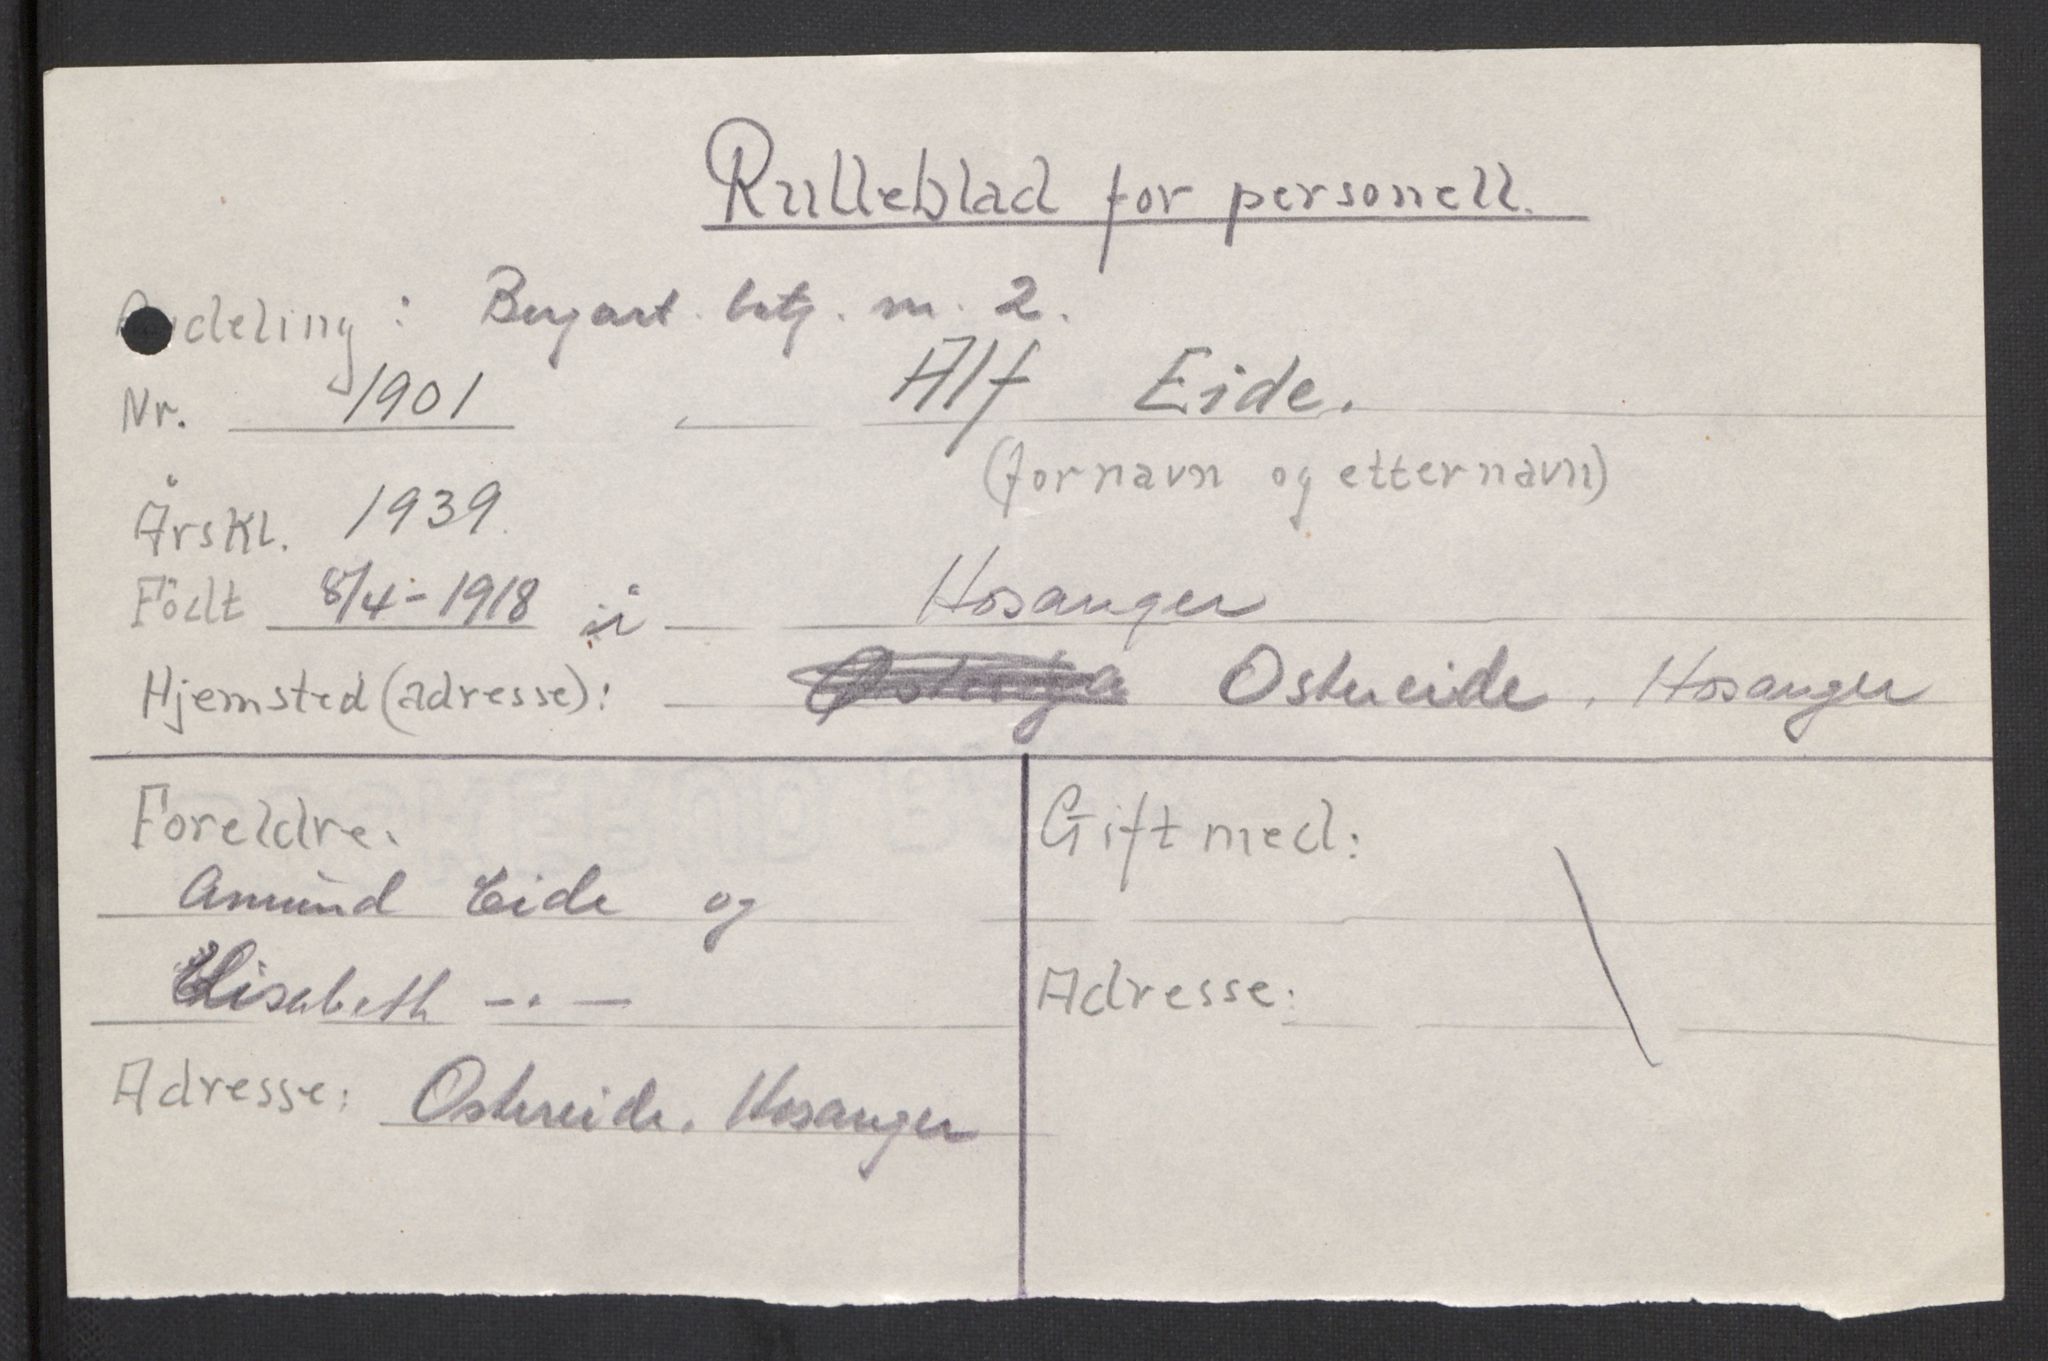 Rulleblad for personell.
Avdeling: Bergart. batj. nr. 2.
Nr. 1901 Alf Eide.
(fornavn og etternavn)
Årskl. 1939.
Födt 8/4-1918 i Hosanger
Hjemsted (adresse): Ostereide, Hosanger
Foreldre.
Amund Eide og
Elisabeth -.-
Adresse: Ostereide. Hosanger
Gift med:
Adresse: